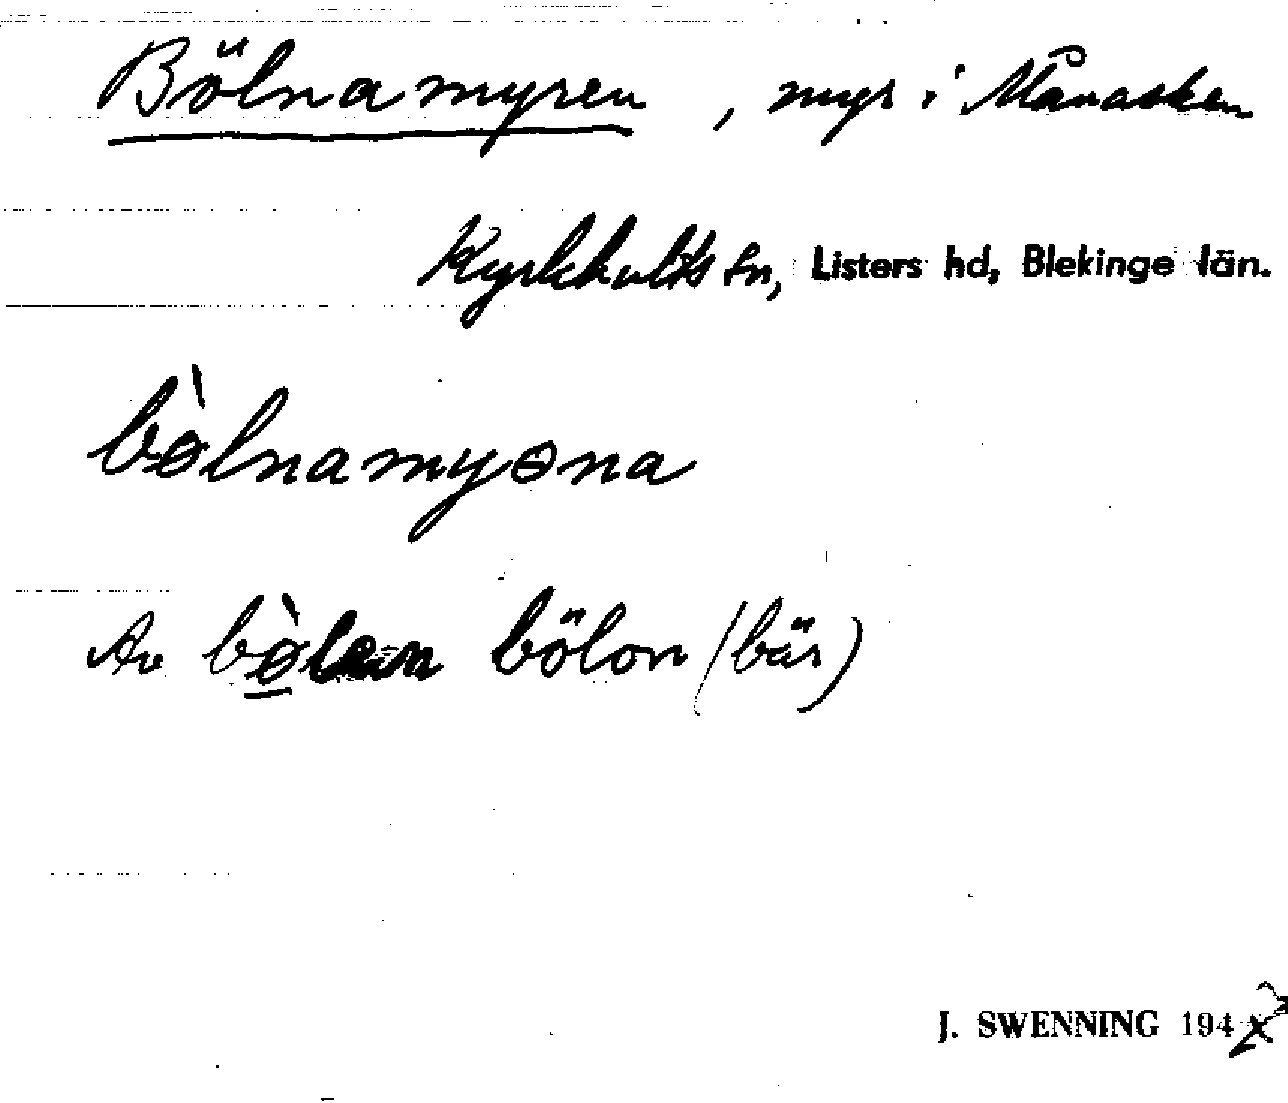 Bölnamyren, myr i Månasken
Kyrkhults sn, Listers hd, Blekinge län.
bø̀lnamyɘna
Av bø̀lan bölon (bär)
J. SWENNING 194